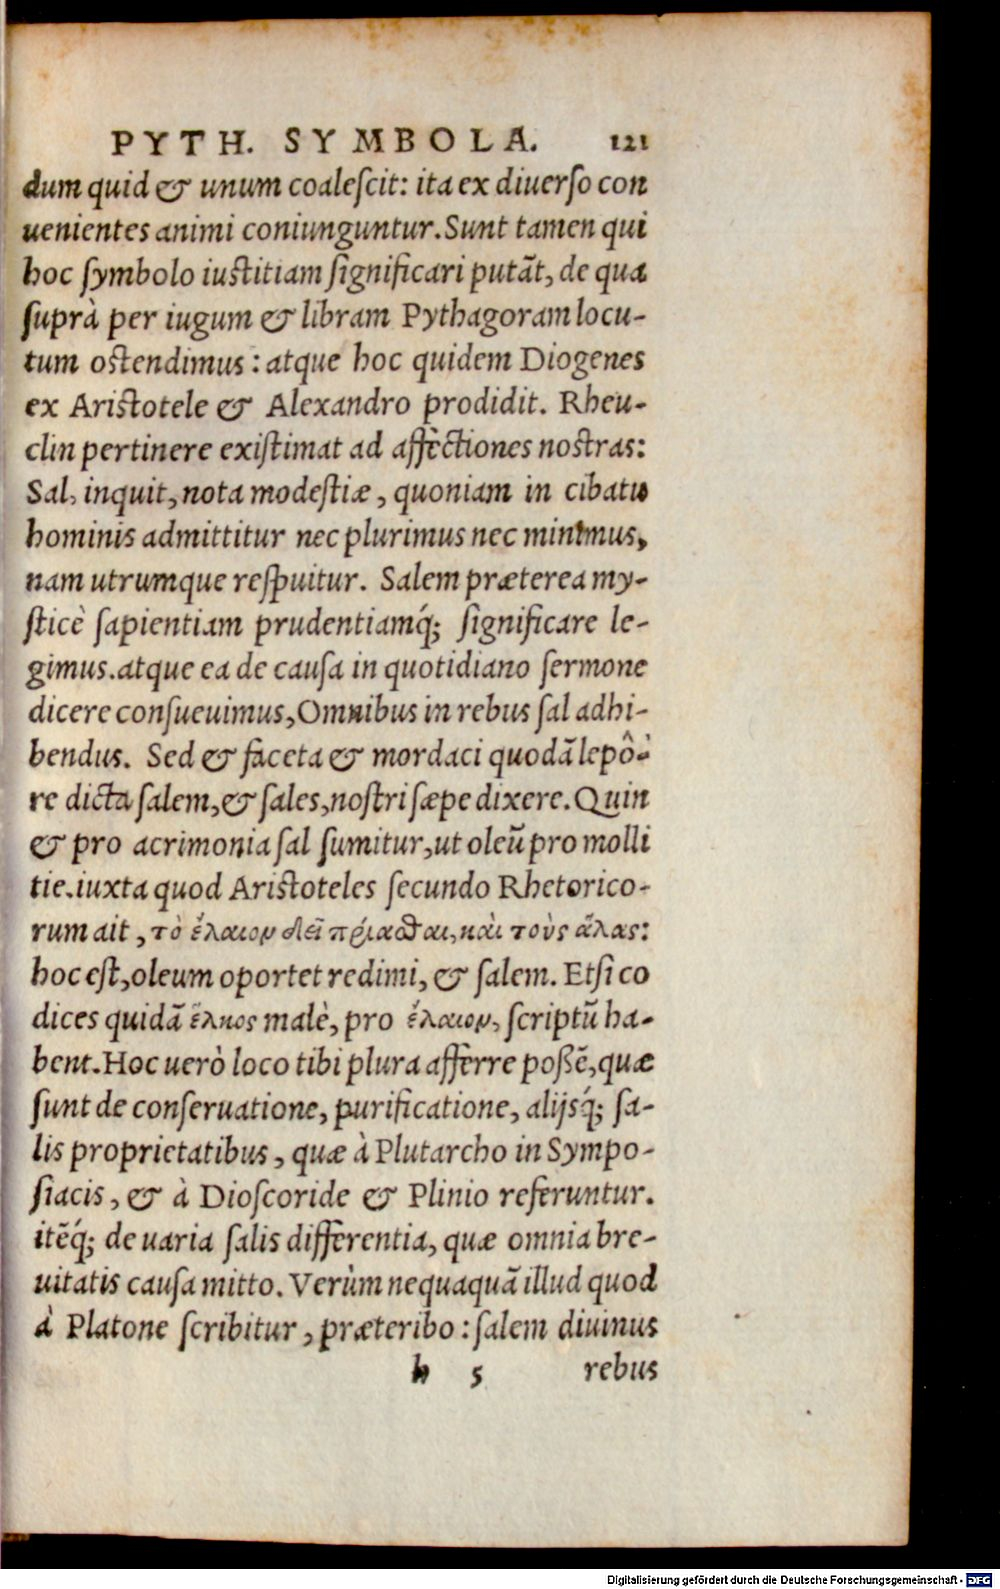 PYTH. SYMBOLA. 121
dum quid & unum coaleſcit: ita ex diuerſo con
uenientes animi coniunguntur. Sunt tamen qui
hoc ſymbolo iuſtitiam ſignificari putāt, de qua
ſuprà per iugum & libram Pythagoram locu-
tum oſtendimus: atque hoc quidem Diogenes
ex Ariſtotele & Alexandro prodidit. Rheu-
clin pertinere exiſtimat ad affectiones noſtras:
Sal, inquit, nota modeſtiæ, quoniam in cibatu
hominis admittitur nec plurimus nec minimus,
nam utrumque reſpuitur. Salem præterea my-
ſticè ſapientiam prudentiamq́; ſignificare le-
gimus. atque ea de cauſa in quotidiano ſermone
dicere conſueuimus, Omnibus in rebus ſal adhi-
bendus. Sed & faceta & mordaci quodā lepô-
re dicta ſalem, & ſales, noſtri ſæpe dixere. Quin
& pro acrimonia ſal ſumitur, ut oleū pro molli
tie. iuxta quod Ariſtoteles ſecundo Rhetorico-
rum ait, τὸ ἔλαιον δεῖ πρίασθαι, καὶ τοὺς ἅλας:
hoc eſt, oleum oportet redimi, & ſalem. Etſi co
dices quidā ἕλκος malè, pro ἔλαιον, ſcriptū ha-
bent. Hoc uerò loco tibi plura afferre poßē, quæ
ſunt de conſeruatione, purificatione, alijsq́; ſa-
lis proprietatibus, quæ à Plutarcho in Sympo-
ſiacis, & à Dioſcoride & Plinio referuntur.
itēq́; de uaria ſalis differentia, quæ omnia bre-
uitatis cauſa mitto. Verùm nequaquā illud quod
à Platone ſcribitur, præteribo: ſalem diuinus
h 5 rebus
Digitalisierung gefördert durch die Deutsche Forschungsgemeinschaft - DFG